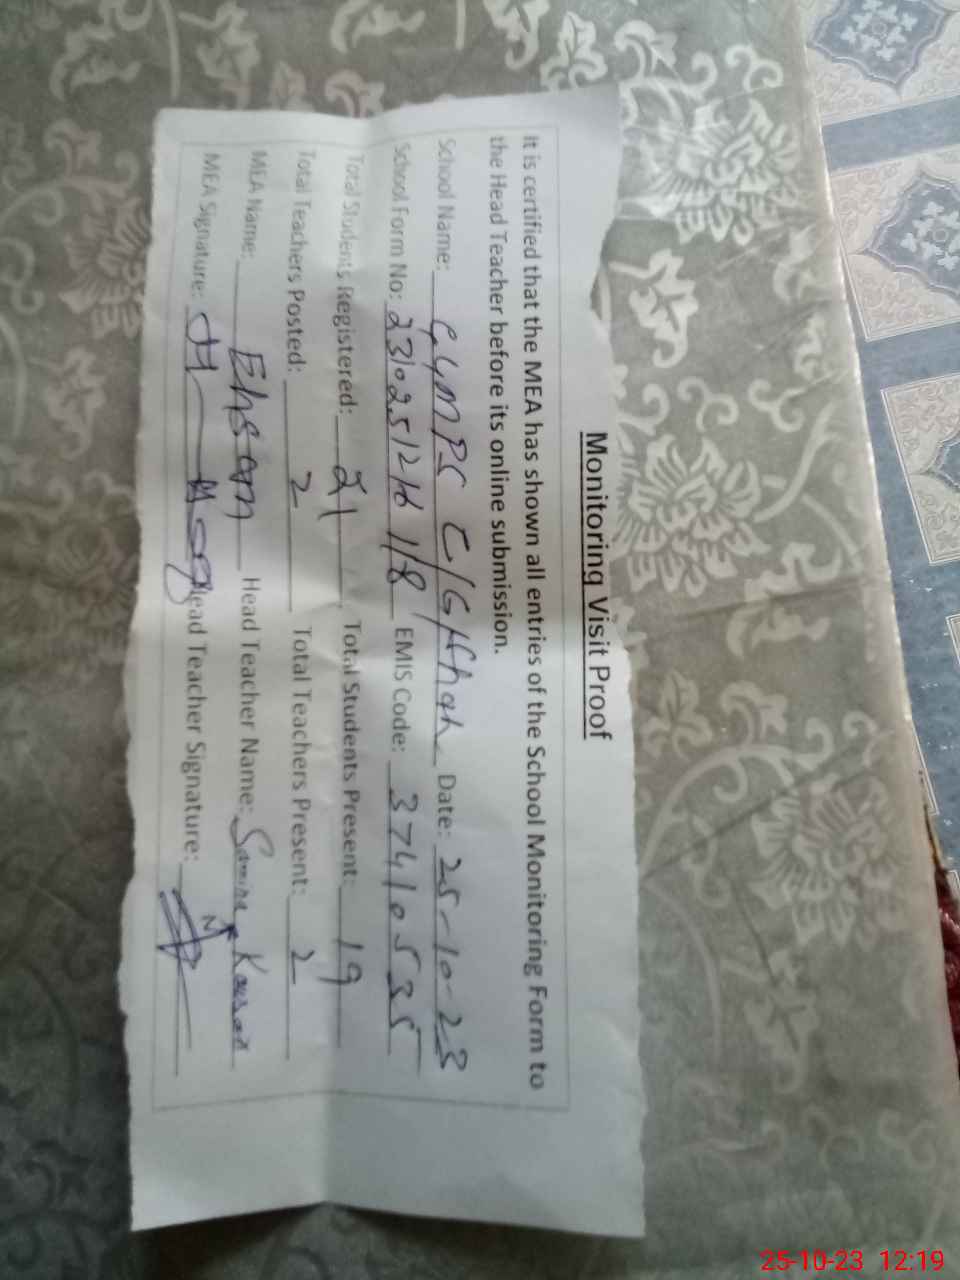 Monitoring Visit Proof
It is certified that the MEA has shown all entries of the School Monitoring Form to
the Head Teacher before its online submission.
School Name: GGMPS Date: 25-10-23
School Form No: EMIS Code: 37410535
Total Students Registered: 21 Total Students Present: 19
Total Teachers Posted: 2 Total Teachers Present: 2
MEA Name: Ehsan Head Teacher Name: Samina Kousar
MEA Signature: Head Teacher Signature:
25-10-23 12:19